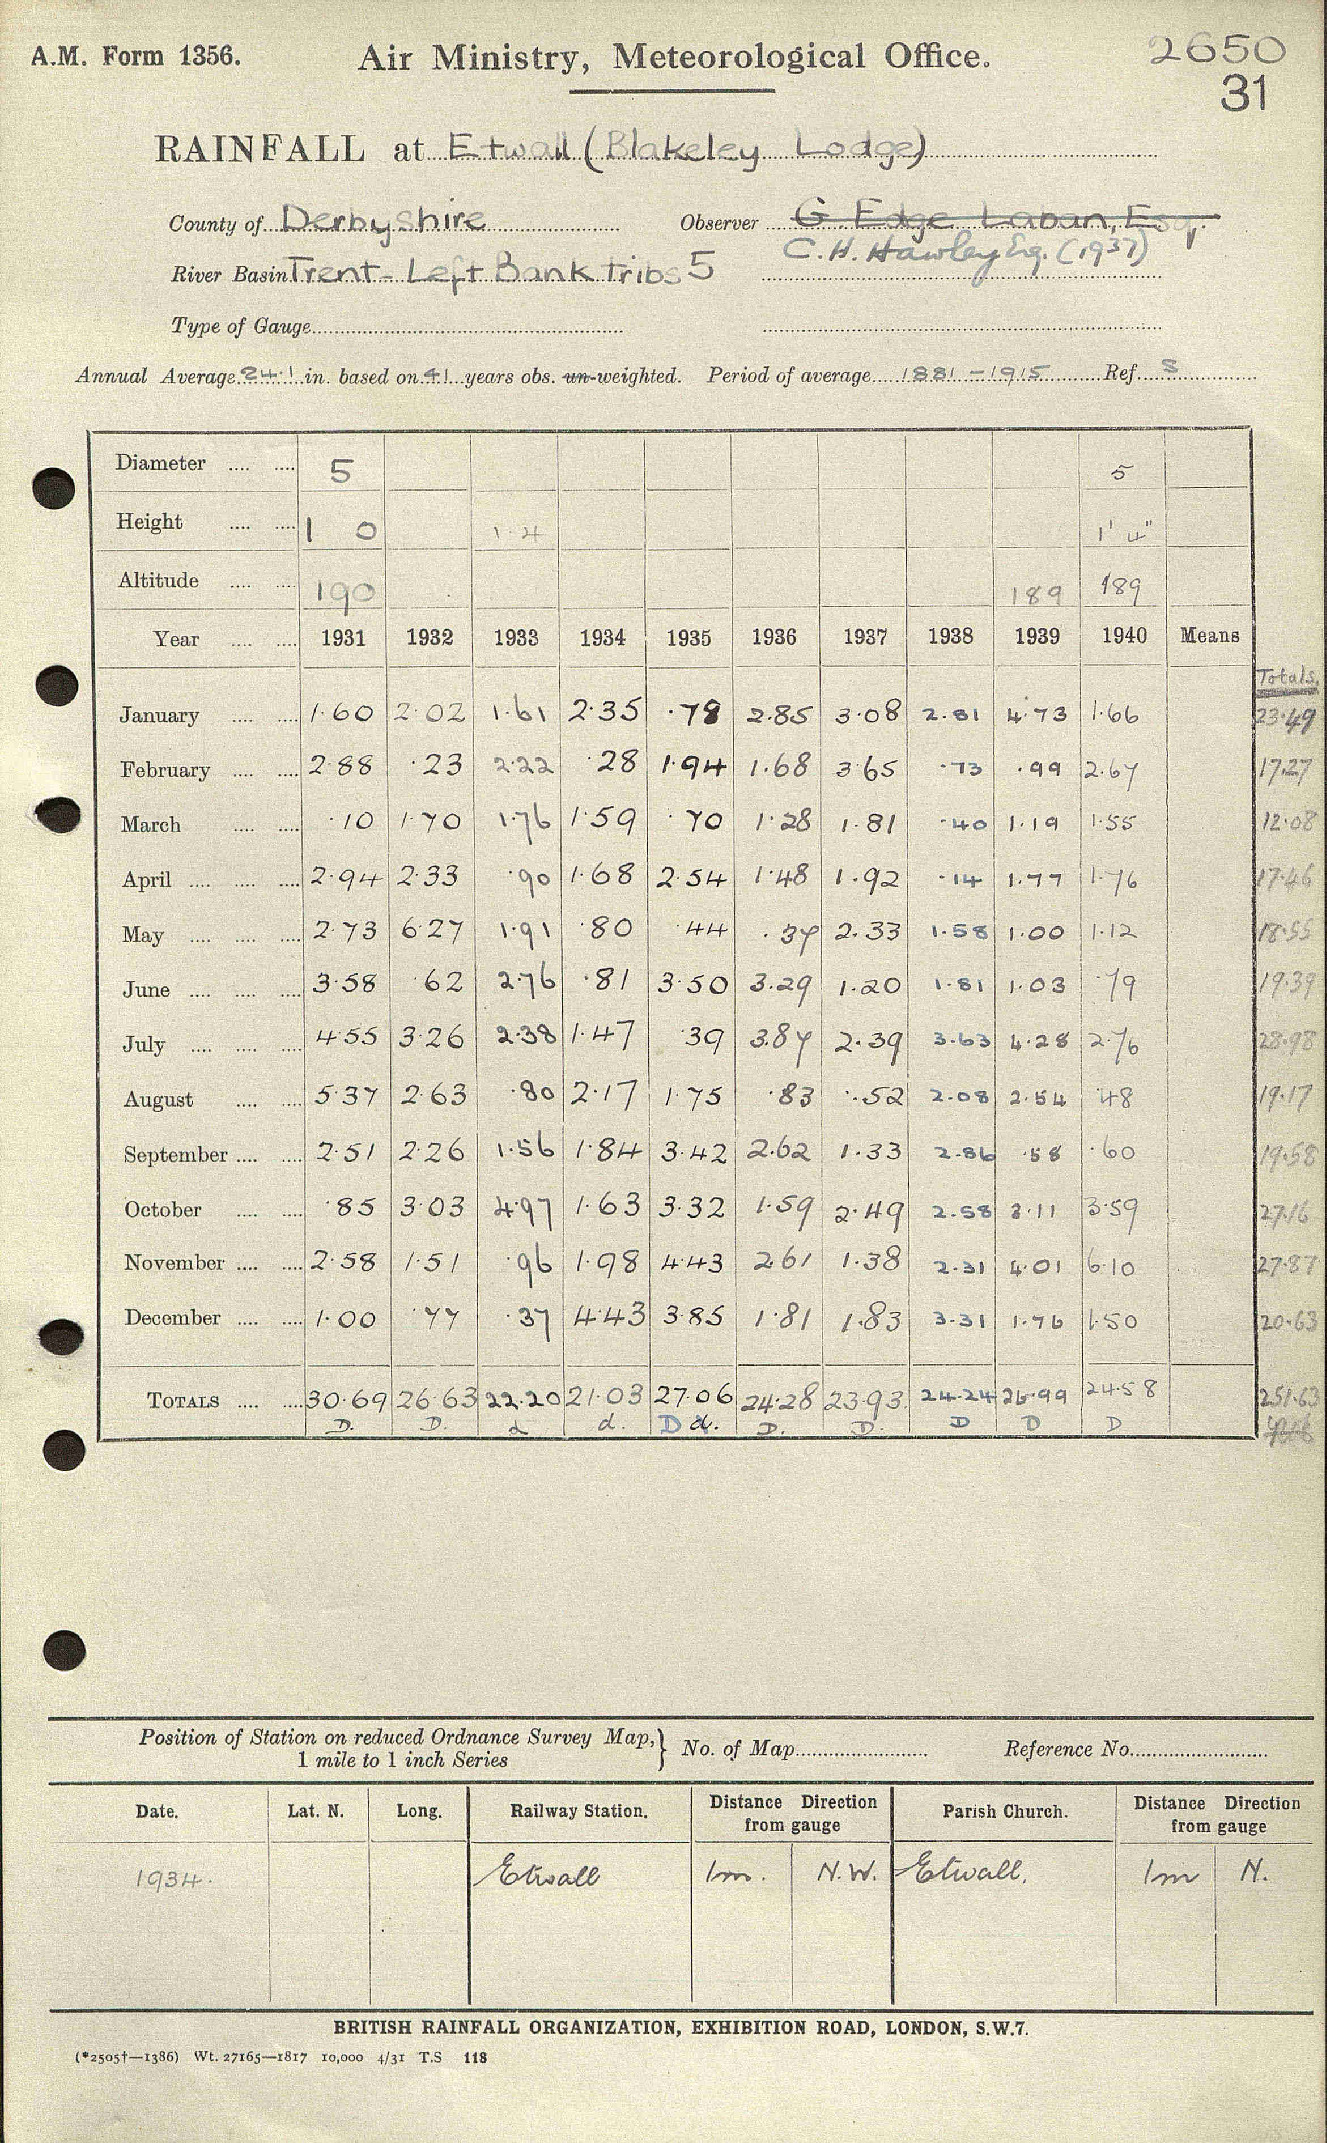 A.M. Form 1356. Air Ministry, Meteorological Office. 2650
31
RAINFALL at Etwall (Blakeley Lodge)
County of Derbyshire Observer G. Edge Laban, Esq.
River Basin Trent - Left Bank tribs 5 C. H. Hawley Esq. (1937)
Type of Gauge
Annual Average 24.1 in. based on 41 years obs. un-weighted. Period of average 1881-1915 Ref. S
Diameter 5 5
Height 1 0 1.4 1' 4"
Altitude 190 189 189
Year 1931 1932 1933 1934 1935 1936 1937 1938 1939 1940 Means Totals.
January 1.60 2.02 1.61 2.35 .78 2.85 3.08 2.81 4.73 1.66 23.49
February 2.88 .23 2.22 .28 1.94 1.68 3.65 .73 .99 2.67 17.27
March .10 1.70 1.76 1.59 .70 1.28 1.81 .40 1.19 1.55 12.08
April 2.94 2.33 .90 1.68 2.54 1.48 1.92 .14 1.77 1.76 17.46
May 2.73 6.27 1.91 .80 .44 .37 2.33 1.58 1.00 1.12 18.55
June 3.58 .62 2.76 .81 3.50 3.29 1.20 1.81 1.03 .79 19.39
July 4.55 3.26 2.38 1.47 .39 3.87 2.39 3.63 4.28 2.76 28.98
August 5.37 2.63 .80 2.17 1.75 .83 .52 2.08 2.54 .48 19.17
September 2.51 2.26 1.56 1.84 3.42 2.62 1.33 2.86 .58 .60 19.58
October .85 3.03 4.97 1.63 3.32 1.59 2.49 2.58 3.11 3.59 27.16
November 2.58 1.51 .96 1.98 4.43 2.61 1.38 2.31 4.01 6.10 27.87
December 1.00 .77 .37 4.43 3.85 1.81 1.83 3.31 1.76 1.50 20.63
TOTALS 30.69 26.63 22.20 21.03 27.06 24.28 23.93 24.24 26.99 24.58 251.63
D. D. d d. D d. D. D. D D D
Position of Station on reduced Ordnance Survey Map, } No. of Map Reference No.
1 mile to 1 inch Series
Date. Lat. N. Long. Railway Station. Distance Direction from gauge Parish Church. Distance Direction from gauge
1934. Etwall 1m. N.W. Etwall. 1m N.
BRITISH RAINFALL ORGANIZATION, EXHIBITION ROAD, LONDON, S.W.7.
(*2505†—1386) Wt. 27165—1817 10,000 4/31 T.S 118